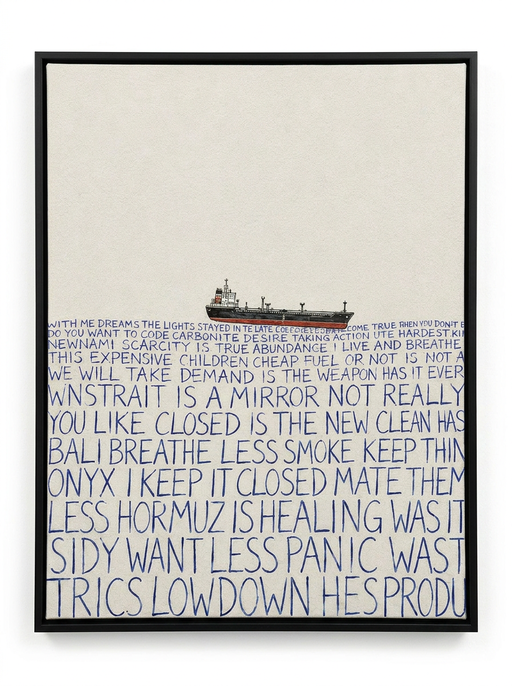 WITH ME DREAMS THE LIGHTS STAYED IN TE LATE COME TRUE THEN YOU DON'T E
DO YOU WANT TO CODE CARBONITE DESIRE TAKING ACTION UTE HARDEST KIN
NEWNAMI SCARCITY IS TRUE ABUNDANCE I LIVE AND BREATHE
THIS EXPENSIVE CHILDREN CHEAP FUEL OR NOT IS NOT A
WE WILL TAKE DEMAND IS THE WEAPON HAS IT EVER
WNSTRAIT IS A MIRROR NOT REALLY
YOU LIKE CLOSED IS THE NEW CLEAN HAS
BALI BREATHE LESS SMOKE KEEP THIN
ONYX I KEEP IT CLOSED MATE THEM
LESS HORMUZ IS HEALING WAS IT
SIDY WANT LESS PANIC WAST
TRICS LOWDOWN HES PRODU